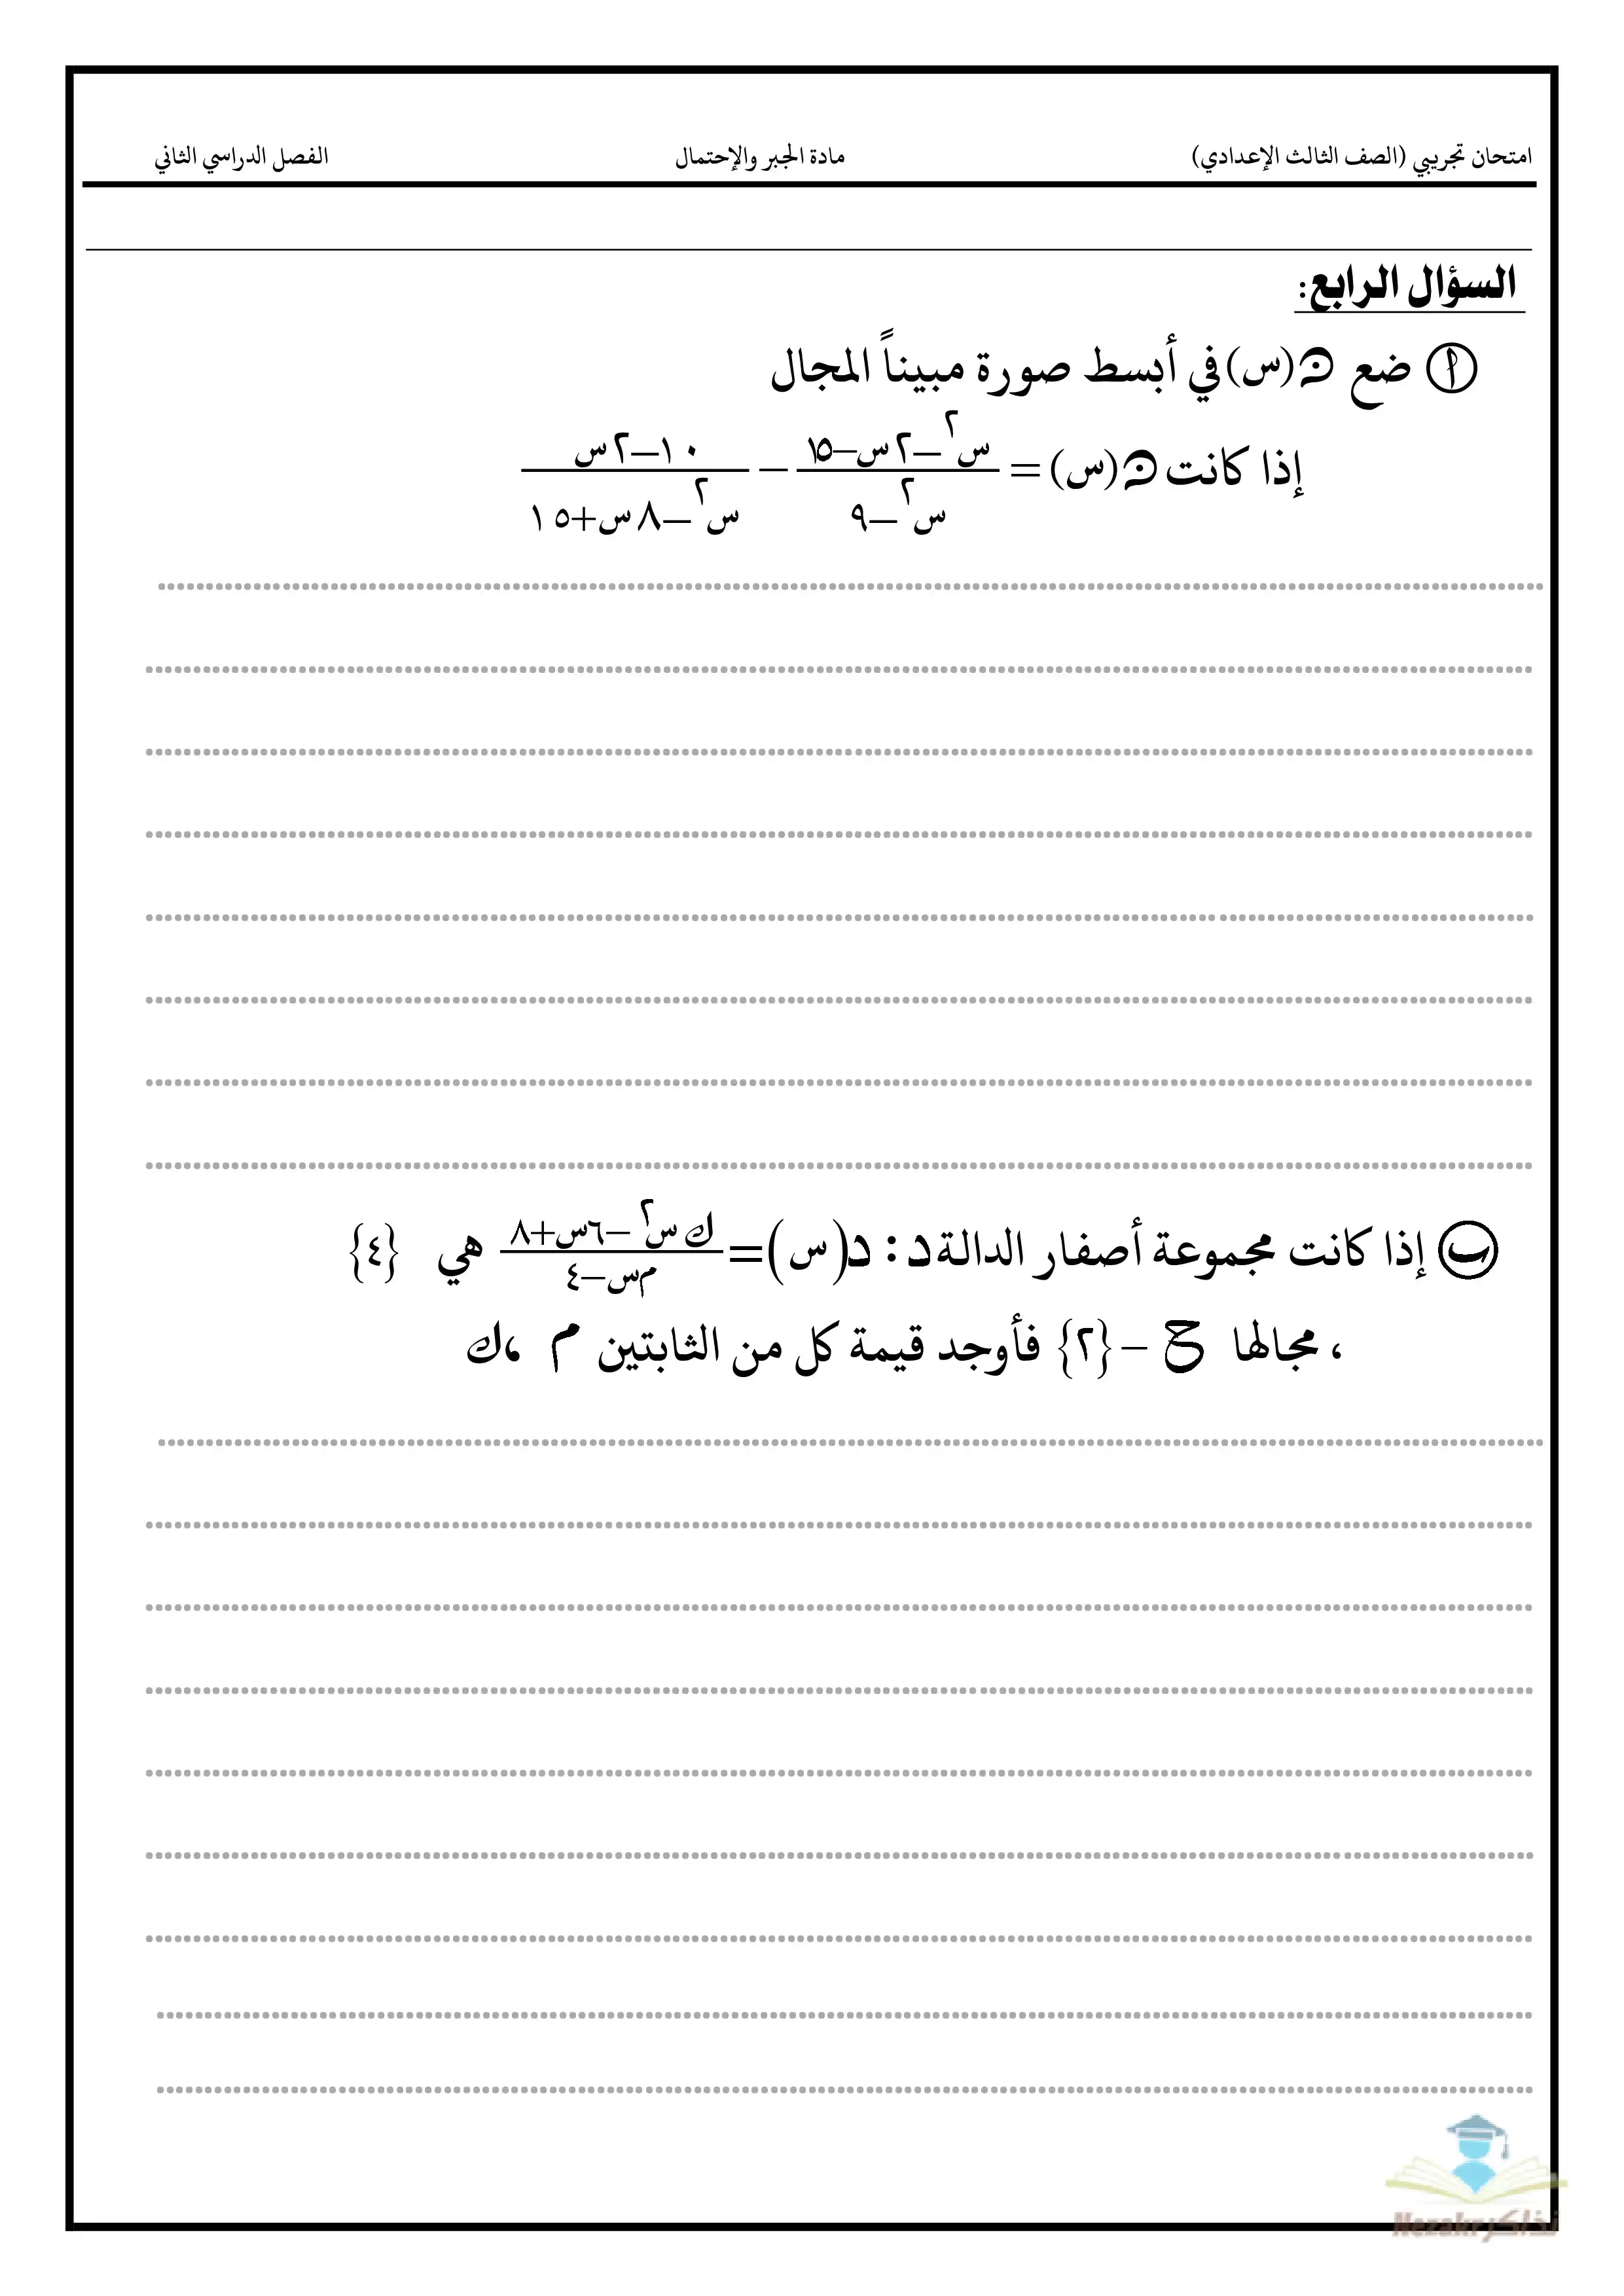 امتحان تجريبي (الصف الثالث الإعدادي) مادة الجبر والإحتمال الفصل الدراسي الثاني
السؤال الرابع:
أ ضع ن(س) في أبسط صورة مبيناً المجال
إذا كانت ن(س) = (س² – ٢س – ١٥)/(س² – ٩) – (١٠ – ٢س)/(س² – ٨س + ١٥)
ب إذا كانت مجموعة أصفار الدالة د : د(س) = (ك س² – ٦س + ٨)/(م س – ٤) هي {٤}
، مجالها ح – {٢} فأوجد قيمة كل من الثابتين م ، ك
نذاكر Nezakr